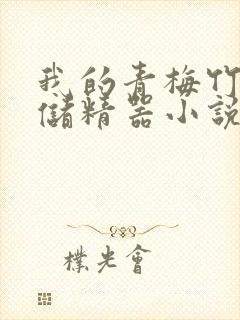 我的青梅竹
儲精器小說
樸光會